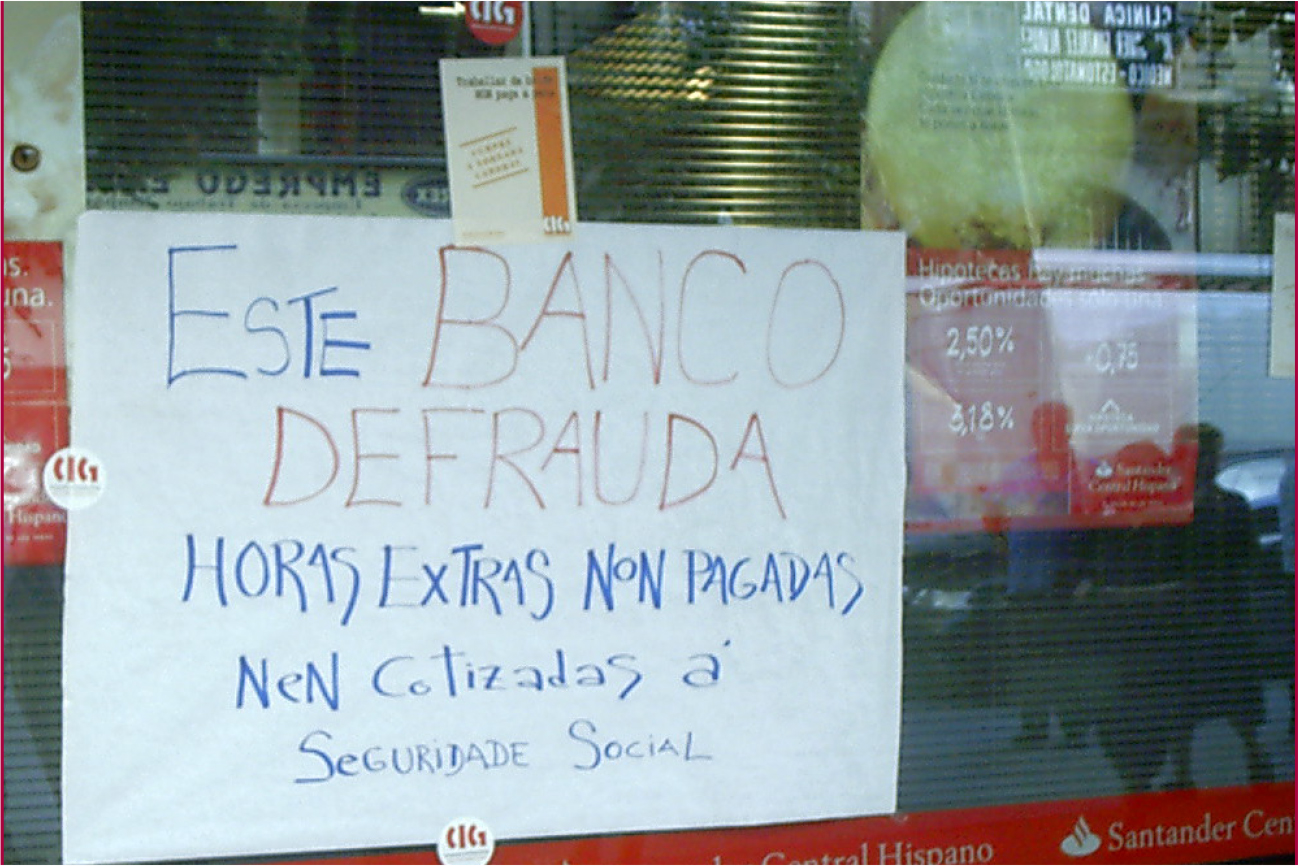 CIG
CLINICA DENTAL
MEDICO ESTOMATOLOGO
Traballar de
NON paga a
CUMPRE
A XORNADA
LABORAL
CIG
EMPREGO
ESTE BANCO
DEFRAUDA
HORAS EXTRAS NON PAGADAS
NeN Cotizadas á
SeGURIDADE SOCIAL
CIG
CIG
s.
una.
Hispano
Hipotecas hay muchas
Oportunidades sólo una.
2,50%
+0,75
3,18%
Santander
Central Hispano
Central Hispano
Santander Cen